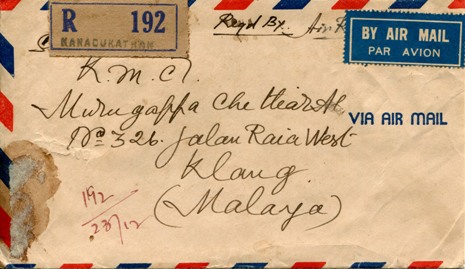 R 192
KANADUKATHAN
Regd By. Air
BY AIR MAIL
PAR AVION
K. M. Ct.
Murugappa Chettiar
VIA AIR MAIL
No 326. Jalan Raia West
Klang.
(Malaya)
192
23/12